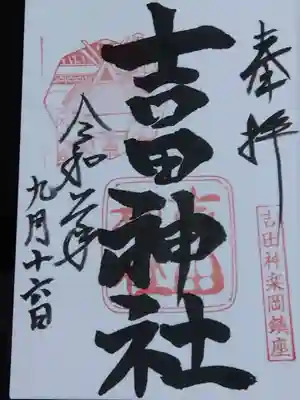 奉拝
吉田神楽岡鎮座
吉田神社
令和年
九月十六日